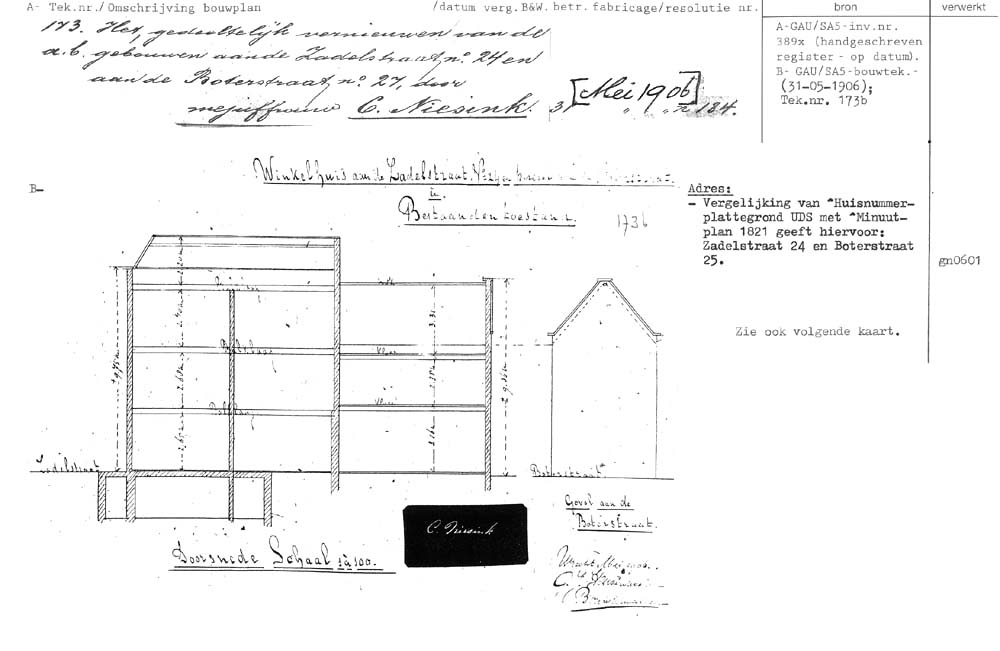 A- Tek.nr./Omschrijving bouwplan /datum verg.B&W. betr. fabricage/resolutie nr. bron verwerkt
173. Het, gedeeltelijk vernieuwen van de
a.b. gebouwen aan de Zadelstraat, no. 24 en
aan de Boterstraat, no. 27, door
mejuffrouw C. Niesink. 31 [Mei 1906] " " n 184.
A-GAU/SA5-inv.nr.
389x (handgeschreven
register - op datum).
B- GAU/SA5-bouwtek.-
(31-05-1906);
Tek.nr. 173b
Winkelhuis aan de Zadelstraat.
B-
Bestaanden toestand.
173b
Adres:
- Vergelijking van "Huisnummer-
plattegrond UDS met "Minuut-
plan 1821 geeft hiervoor:
Zadelstraat 24 en Boterstraat
25.
gn0601
Zie ook volgende kaart.
Zadelstraat
Balklaag
Balklaag
vloer
vloer
3.31
Boterstraat
Gevel aan de
Boterstraat.
C. Niesink
Doorsnede Schaal 1à100.